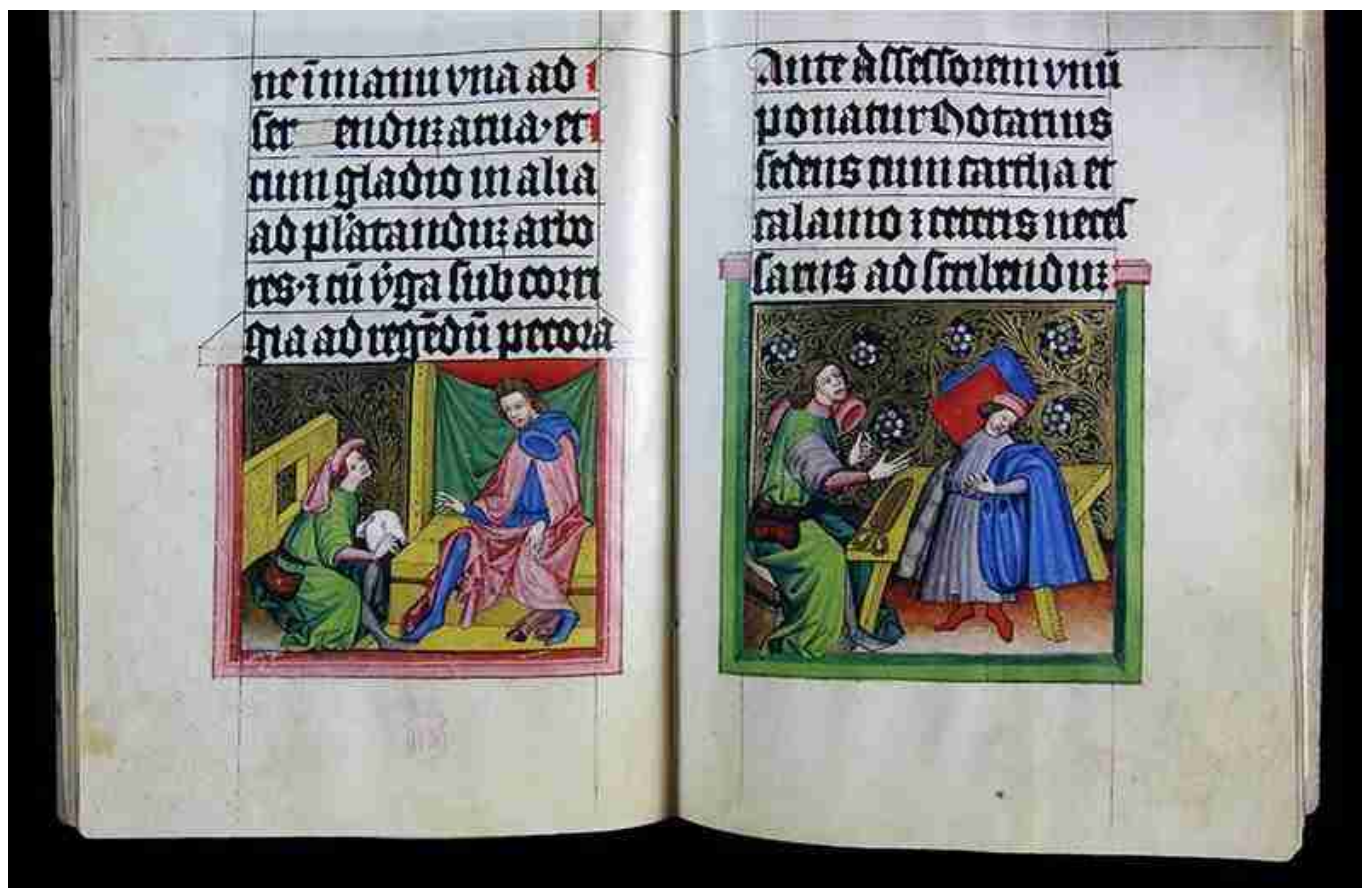 ne ī manu vna ad
ſer enduꝫ arua· et
cum gladio in alia
ad plātanduꝫ arbo
res· ⁊ cū v̄ga ſub corri
gia ad regēdū pecora
Ante Aſſeſſorem vnū
ponatur Notarius
ſedens cum cartha et
calamo ⁊ ceteris neceſ
ſariis ad ſcribenduꝫ